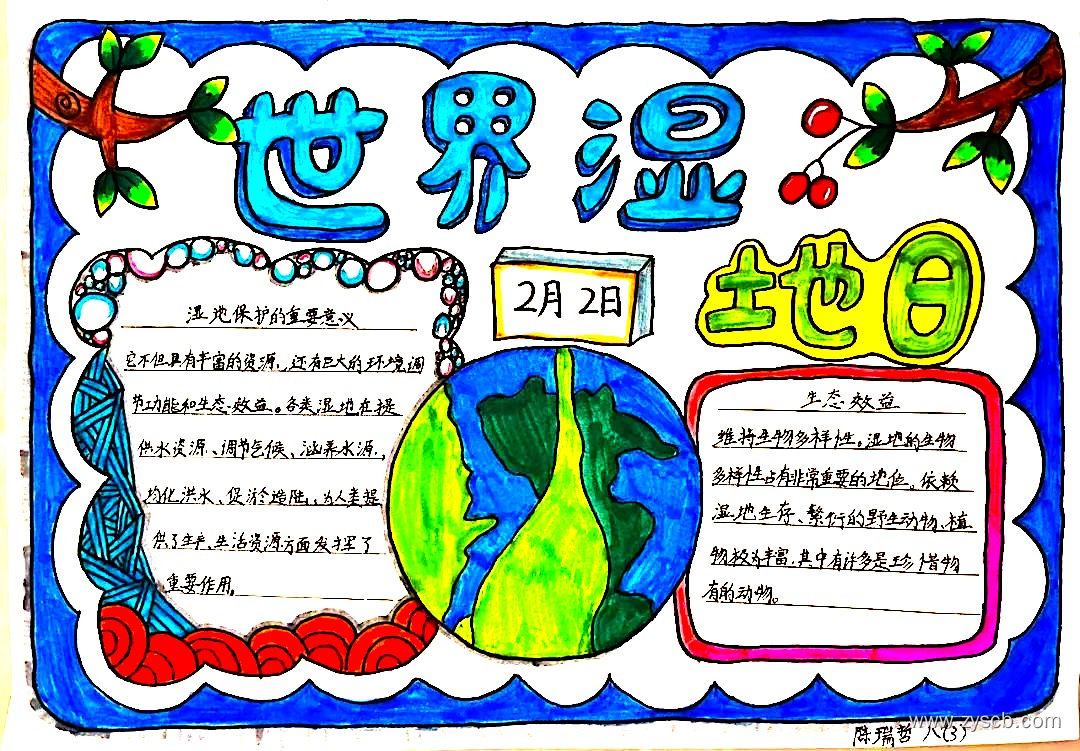 世界湿
地日
2月 2日
湿地保护的重要意义
它不但具有丰富的资源,还有巨大的环境调
节功能和生态效益。各类湿地在提
供水资源、调节气候、涵养水源,
均化洪水、促淤造陆,为人类提
供了生产、生活资源方面发挥了
重要作用。
生态效益
维持生物多样性。湿地的生物
多样性占有非常重要的地位。依赖
湿地生存、繁衍的野生动物、植
物极为丰富,其中有许多是珍惜物
有的动物。
www.zyscb.com
陈瑞哲 八(3)